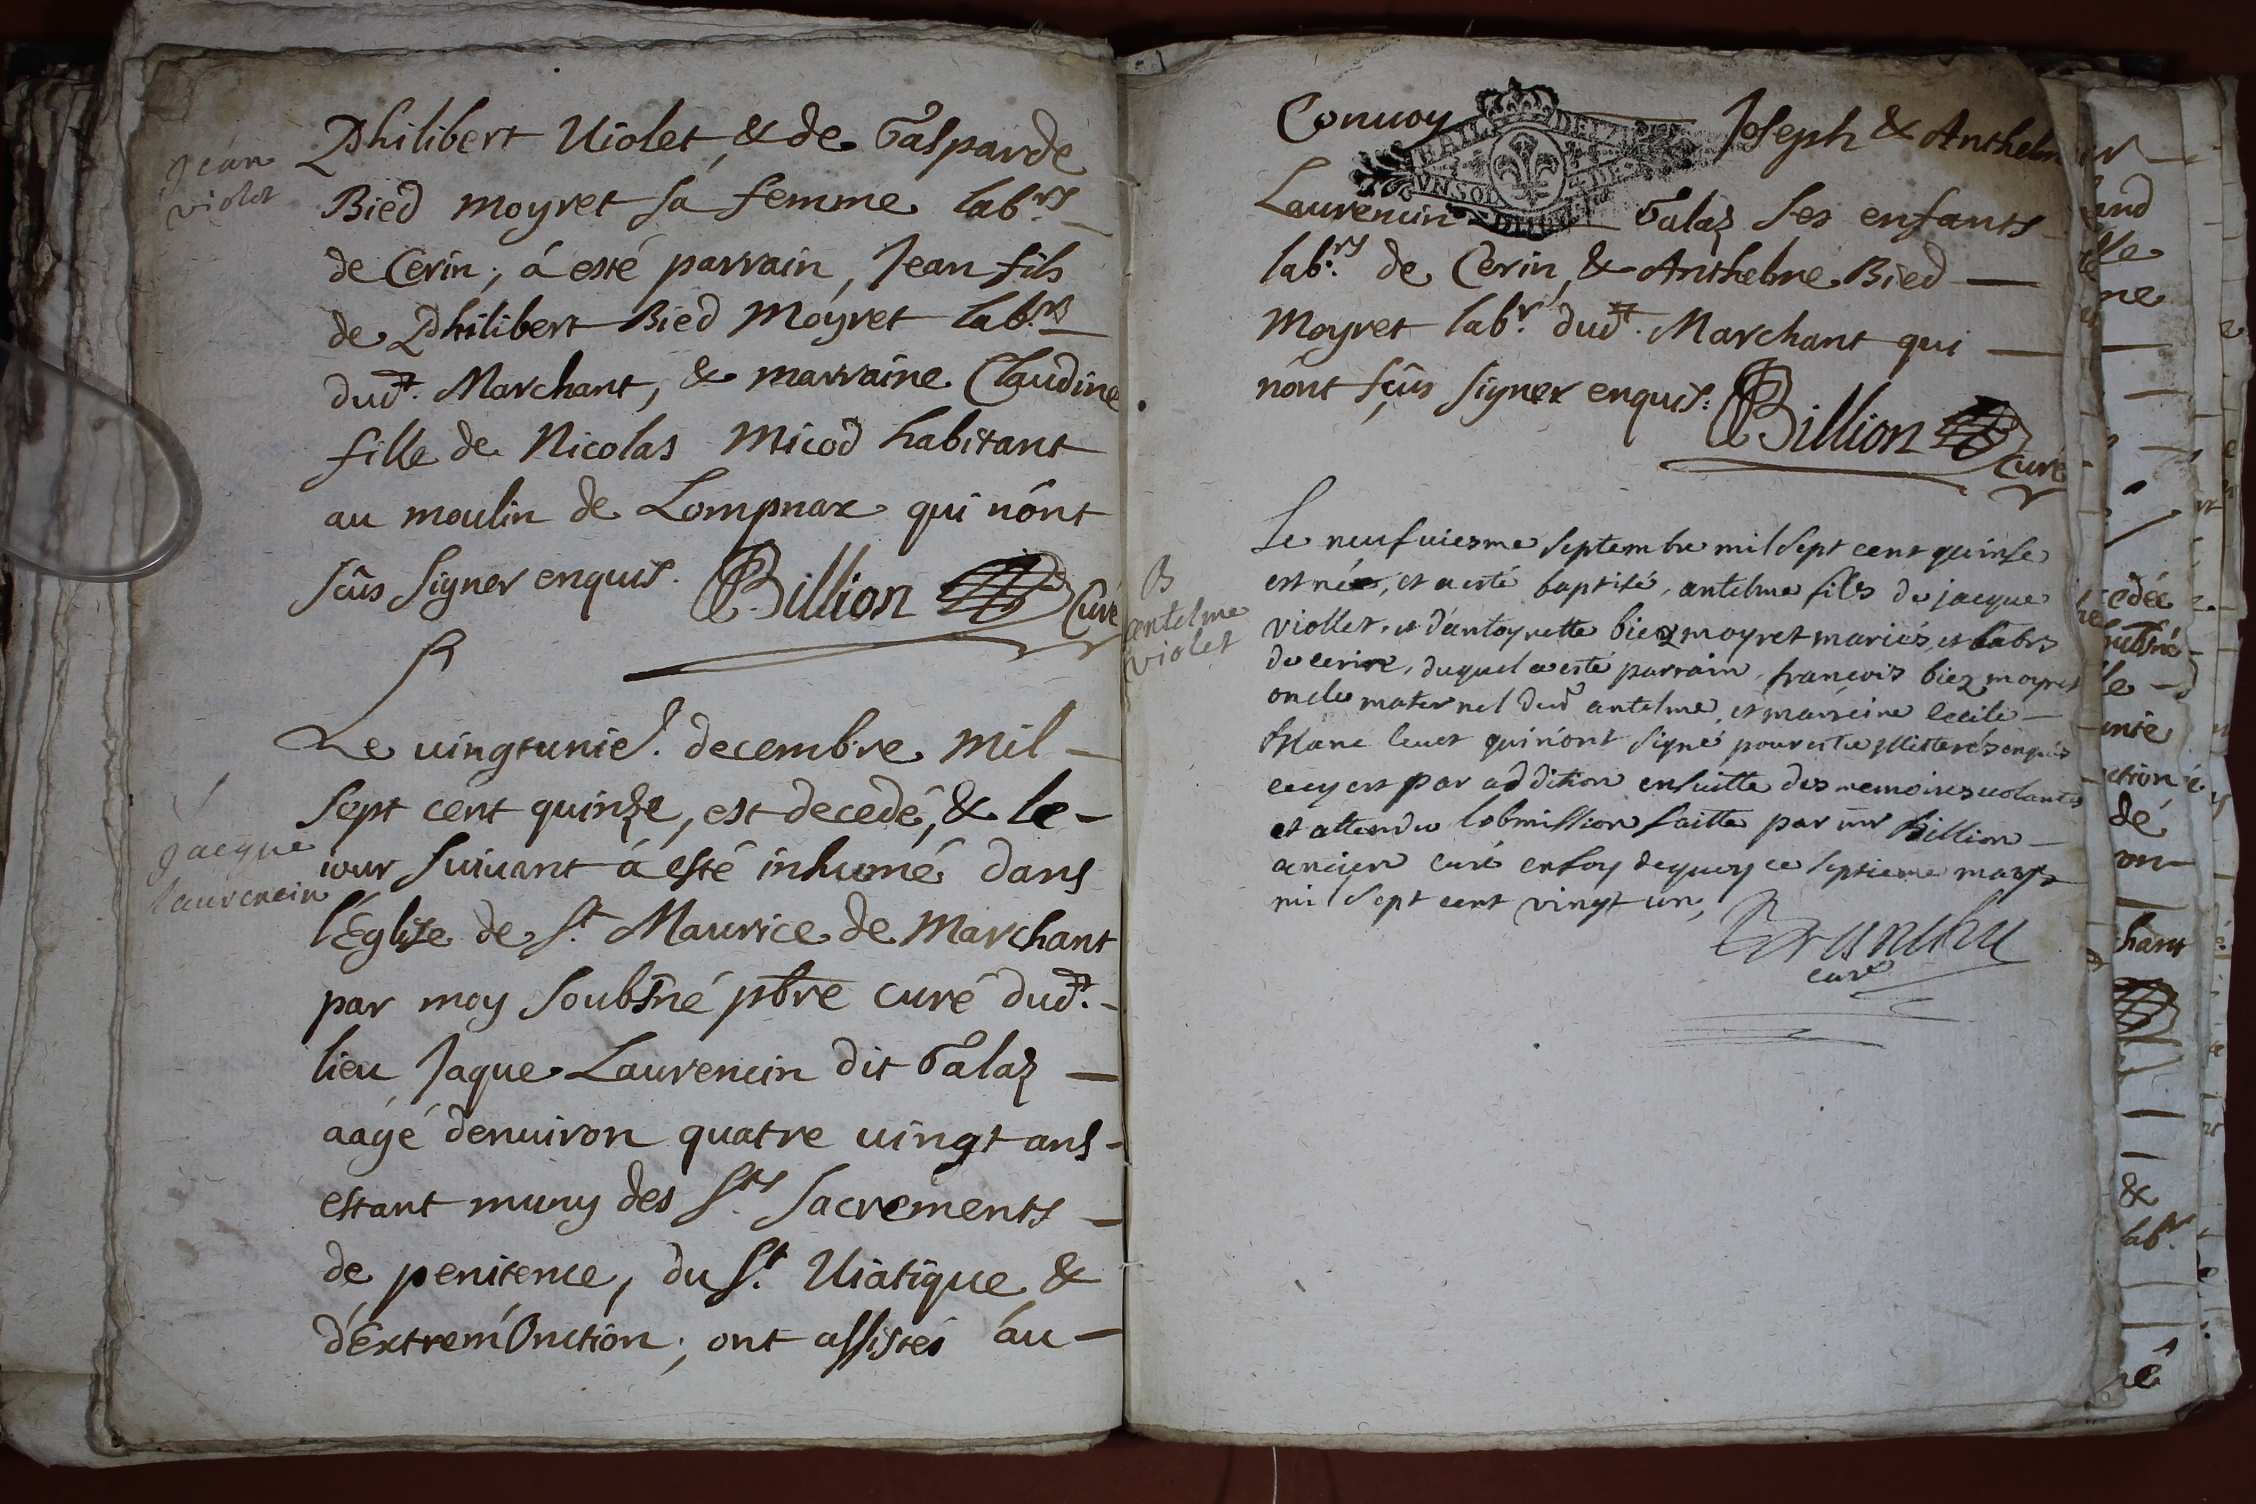 Jean
violet
Philibert Uiolet, & de Gasparde
Bied moyret sa femme lab.rs
de Cerin; á esté parrain, Jean fils
de Philibert Bied Moyret lab.r
dud.t Marchant, & marraine Claudine
fille de Nicolas Micod habitant
au moulin de Lompnax qui nónt
sçûs signer enquis. Billion Curé
Le uingtunie.e decembre mil
sept cént quinze, est decedé, & le
jacque
laurencin
iour suiuant á esté inhumé dans
l'Eglise de S.t Maurice de Marchant
par moy soubsné pbre curé dud.t
lieu Jaque Laurencin dit Galaz
aágé denuiron quatre uingt ans
estant muny des S.ts sacrements
de penitence, du S.t Uiatique &
d'Extrem'Onction; ont assistés áu
Conuoy Joseph & Anthelm
Laurencin Galaz ses enfants
lab.rs de Cerin, & Anthelme Bied
Moyret lab.r dud.t Marchant qui
nónt sçûs signer enquis: Billion curé
B
antelme
violet
Le neufuiesme septembre mil sept cent quinse
est né, et a esté baptisé, antelme fils de jacque
viollet, et d'antoynette biez moyret mariés, et labrs
de cerin, duquel a esté parrain, françois biez moyret
oncle maternel dud antelme, et marreine cecile
qui n'ont signé pour estre illitterés enquis
cecy est par addition ensuitte des memoires uolantes
et attendu lobmission faitte par mr Billion
ancien curé en foy dequoy ce septieme mars
mil sept cent vingt un,
curé